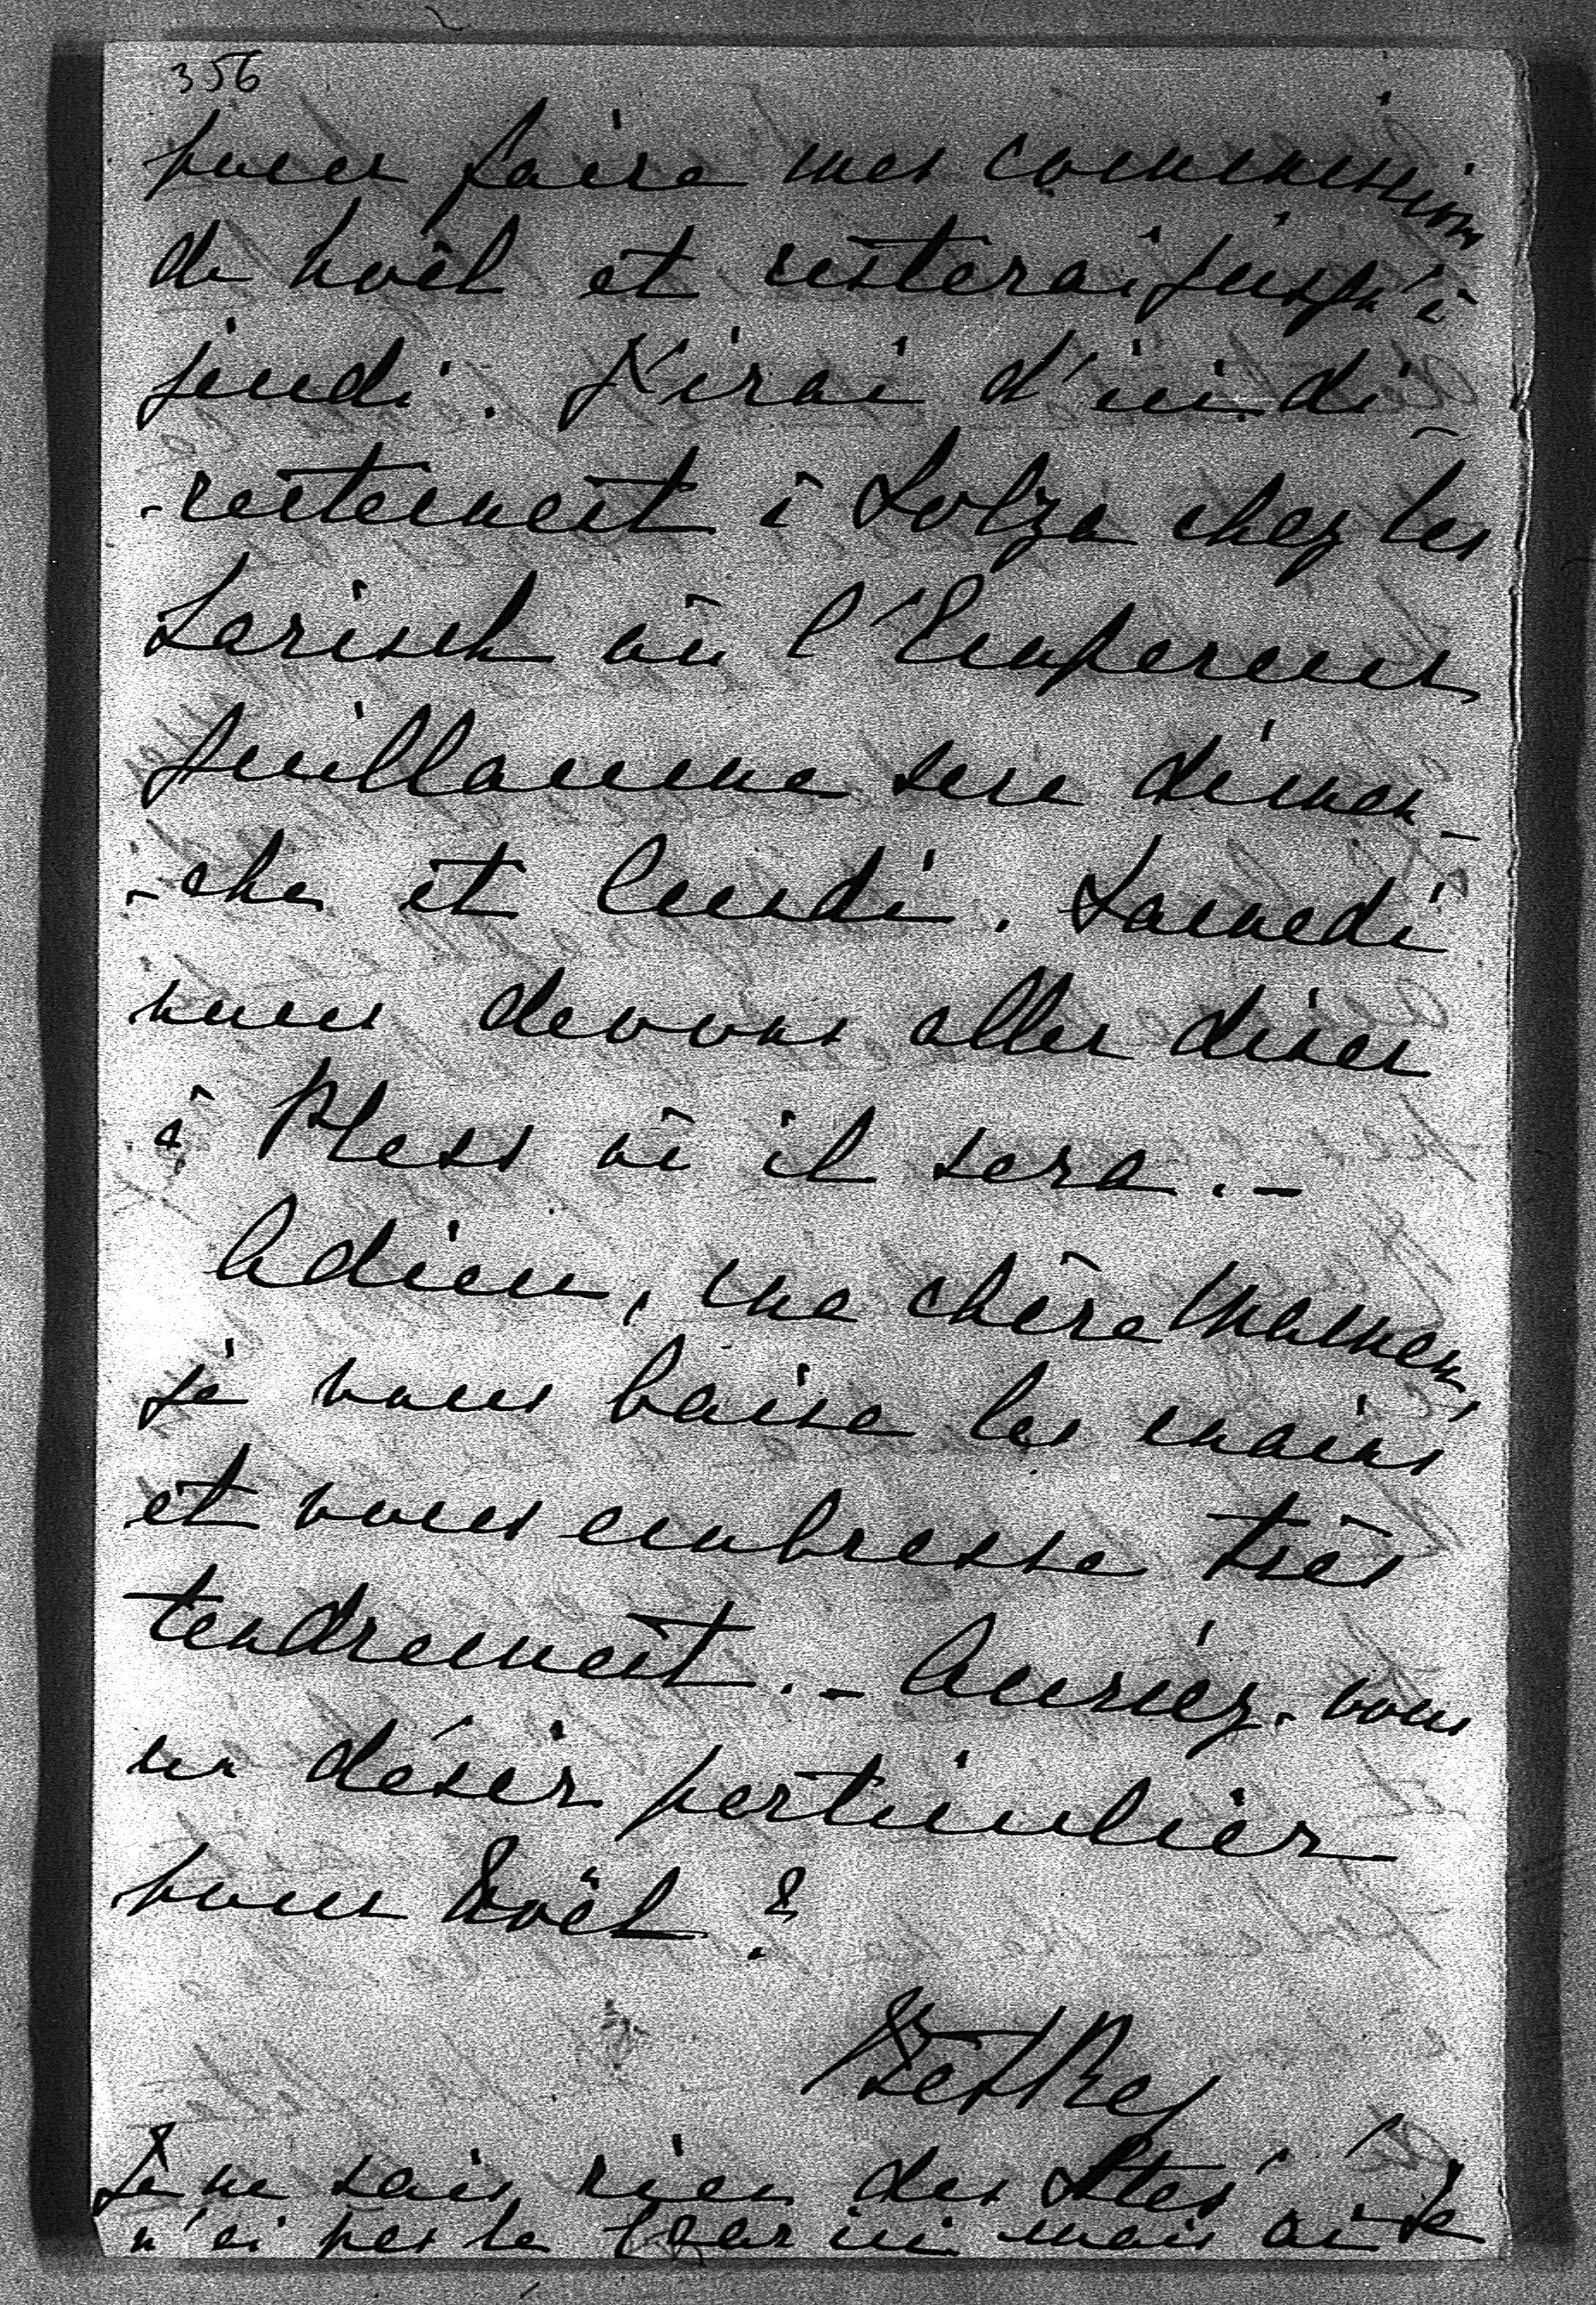 356
pour faire mes commissions
de noël et resterai jusqu'à
jeudi. J'irai d'ici di-
-rectement à Solza chez les
Larisch où l'Empereur
Guillaume sera diman-
-che et lundi. Samedi
nous devons aller dîner
à Pless où il sera.-
Adieu, ma chère Maman,
je vous baise les mains
et vous embrasse très
tendrement.- Auriez-vous
un désir particulier
pour Noël?
Je ne sais rien des
n'ai pas le ici mais